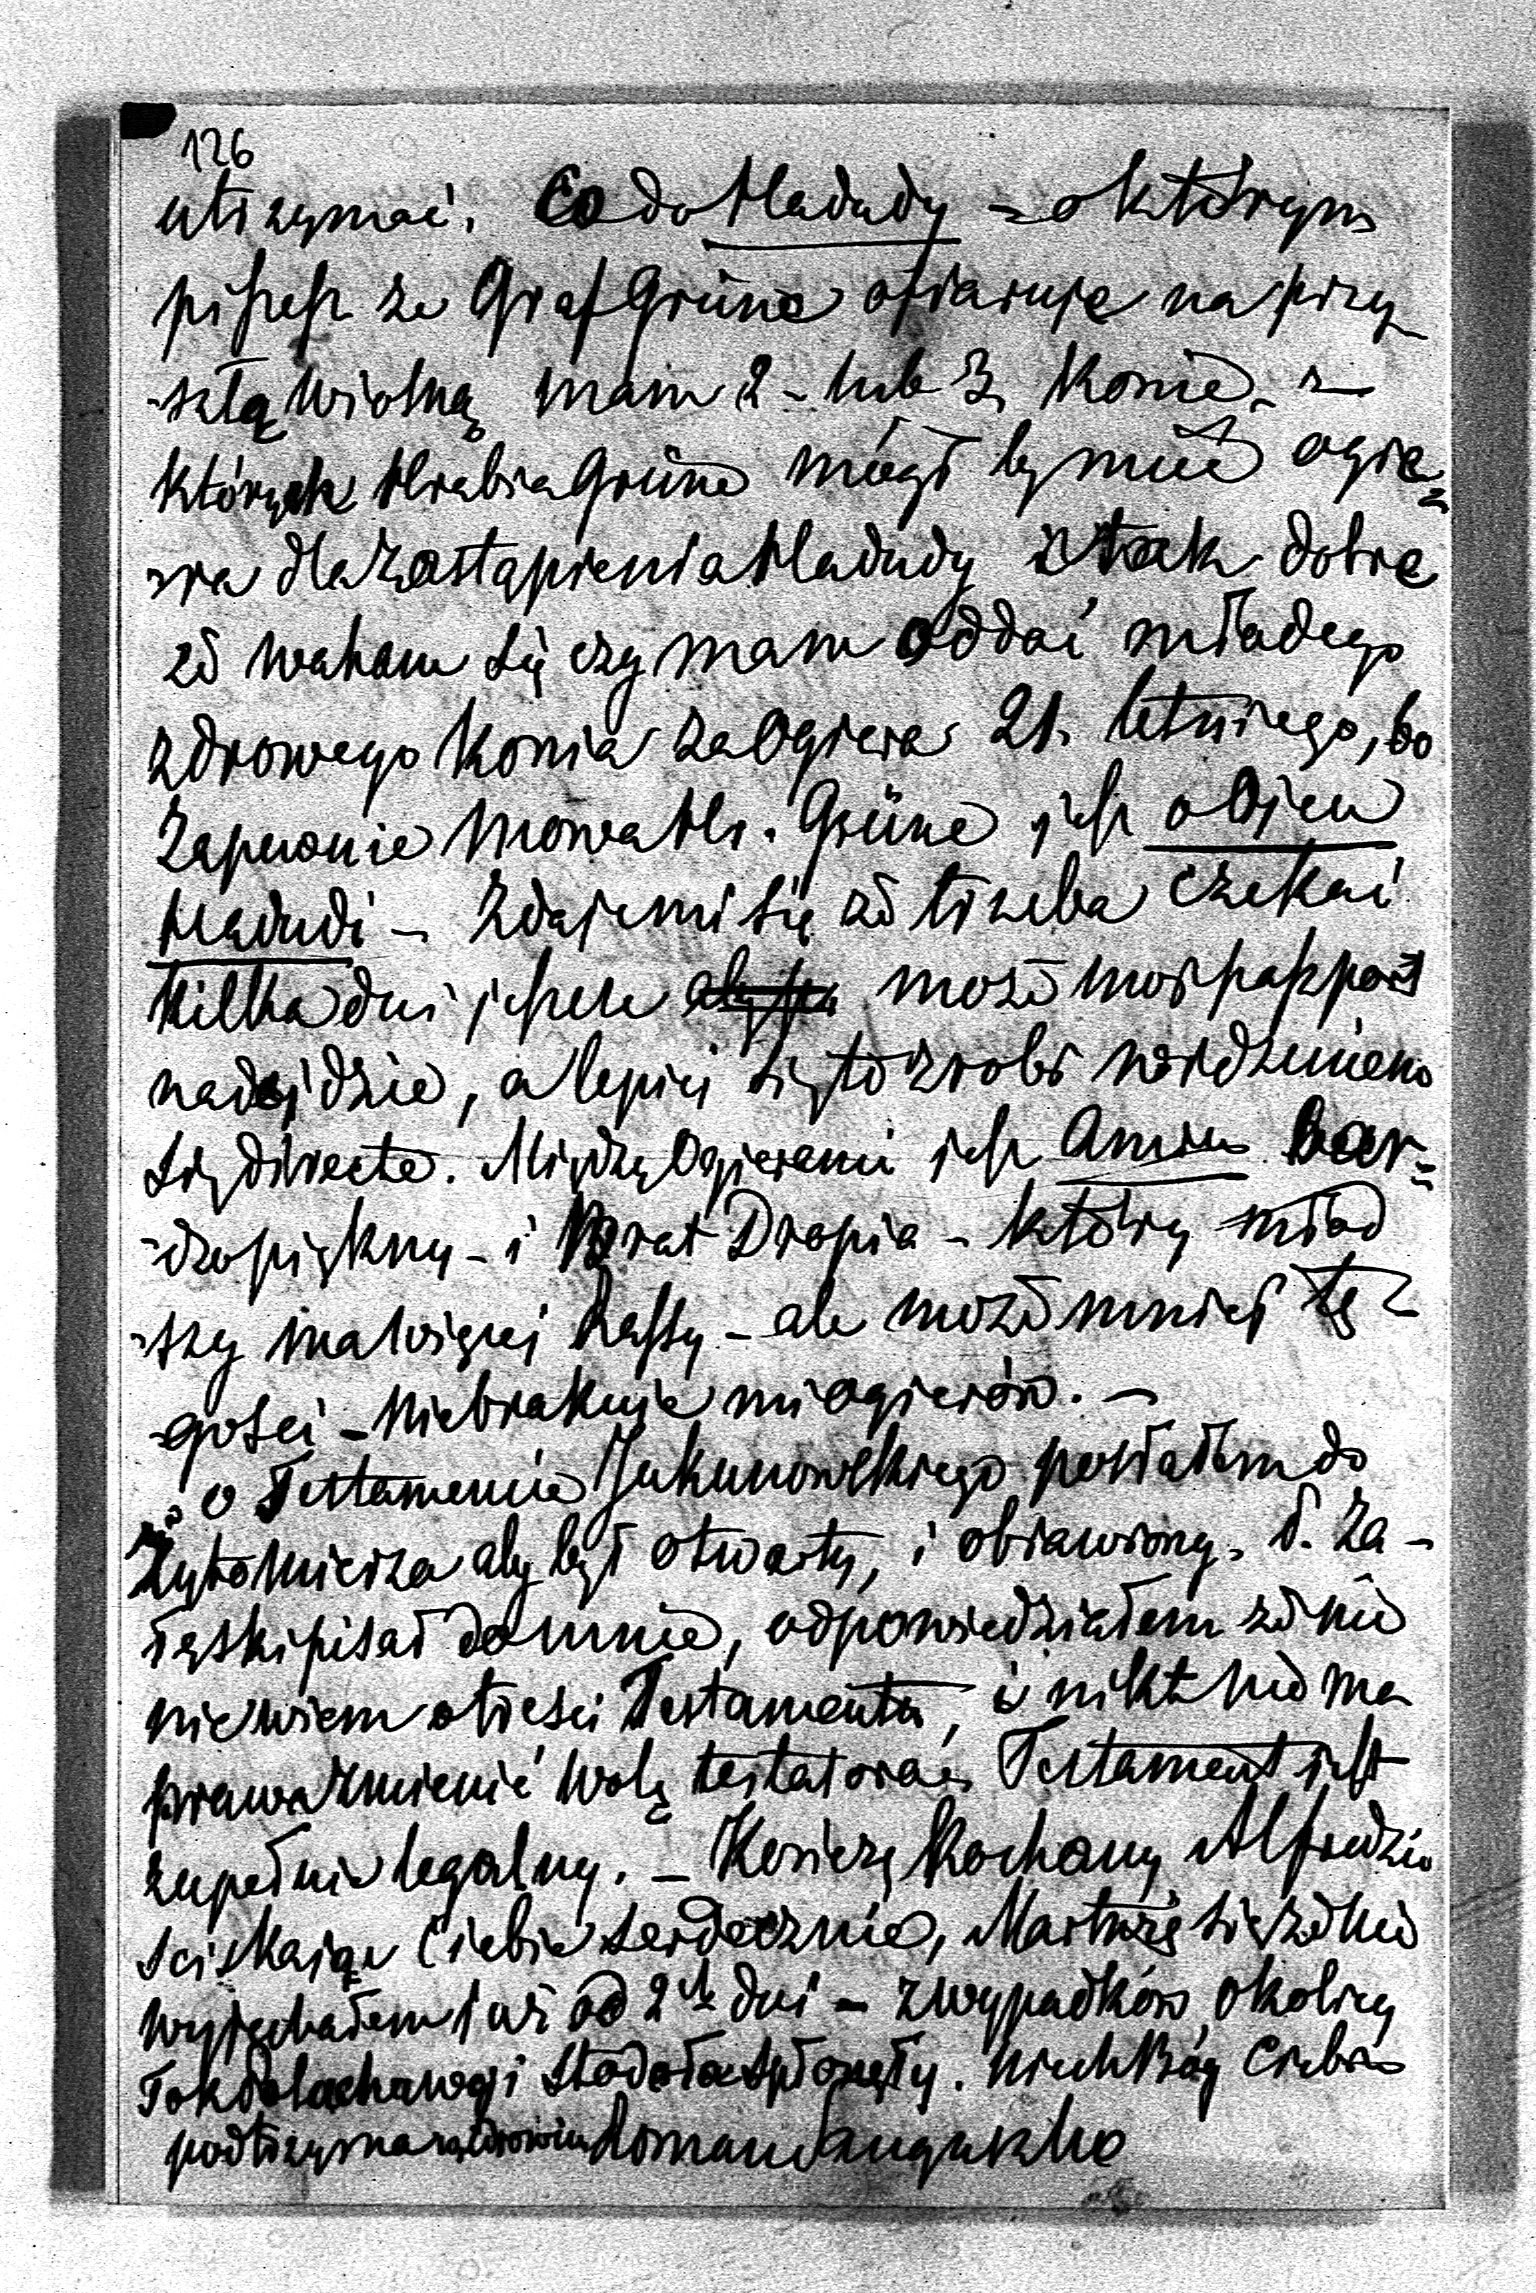 126
utrzymać. Co do Hadudy – o którym
piszesz że Graf Grüne ofiaruje na przy-
-szłą wiosną mam 2 – lub 3 konie –
których Hrabia Grüne mógł by mieć ogie-
-ra dla zastąpienia Hadudy i tak dobre
że waham się czy mam oddać młodego
zdrowego konia za Ogiera 21. letniego, bo
zapewnie mowa Hr. Grüne jest o Ojcu
Hadudi – Zdaje mi się że trzeba czekać
kilka dni jeszcze może mój paszport
nadejdzie, a lepiej się to zrobi widzenieno
się directe. Między Ogierami jest Amien bar-
-dzo piękny – i Brat Dropia – który młod
-szy ma więcej Rassy – ale może mniej tę-
-gości – nie brakuje mi ogierów. –
o Testamencie Jukunowskiego posłałem do
Żytomierza aby był otwarty, i objawiony. P. Za-
łęski pisał do mnie, odpowiedziałem że nic
nie wiem o treści Testamentu, i nikt nie ma
prawa zmienić wolę testatora, Testament jest
zupełnie legalny. – Kończę Kochany Alfredzie
ściskając Ciebie serdecznie, Martwię się że nie
wyjechałem już od 2ch dni – z wypadków okolicy
Tok i Stodoła spłonęły. niech Bóg Ciebie
podtrzyma na zdrowiu Roman Sanguszko